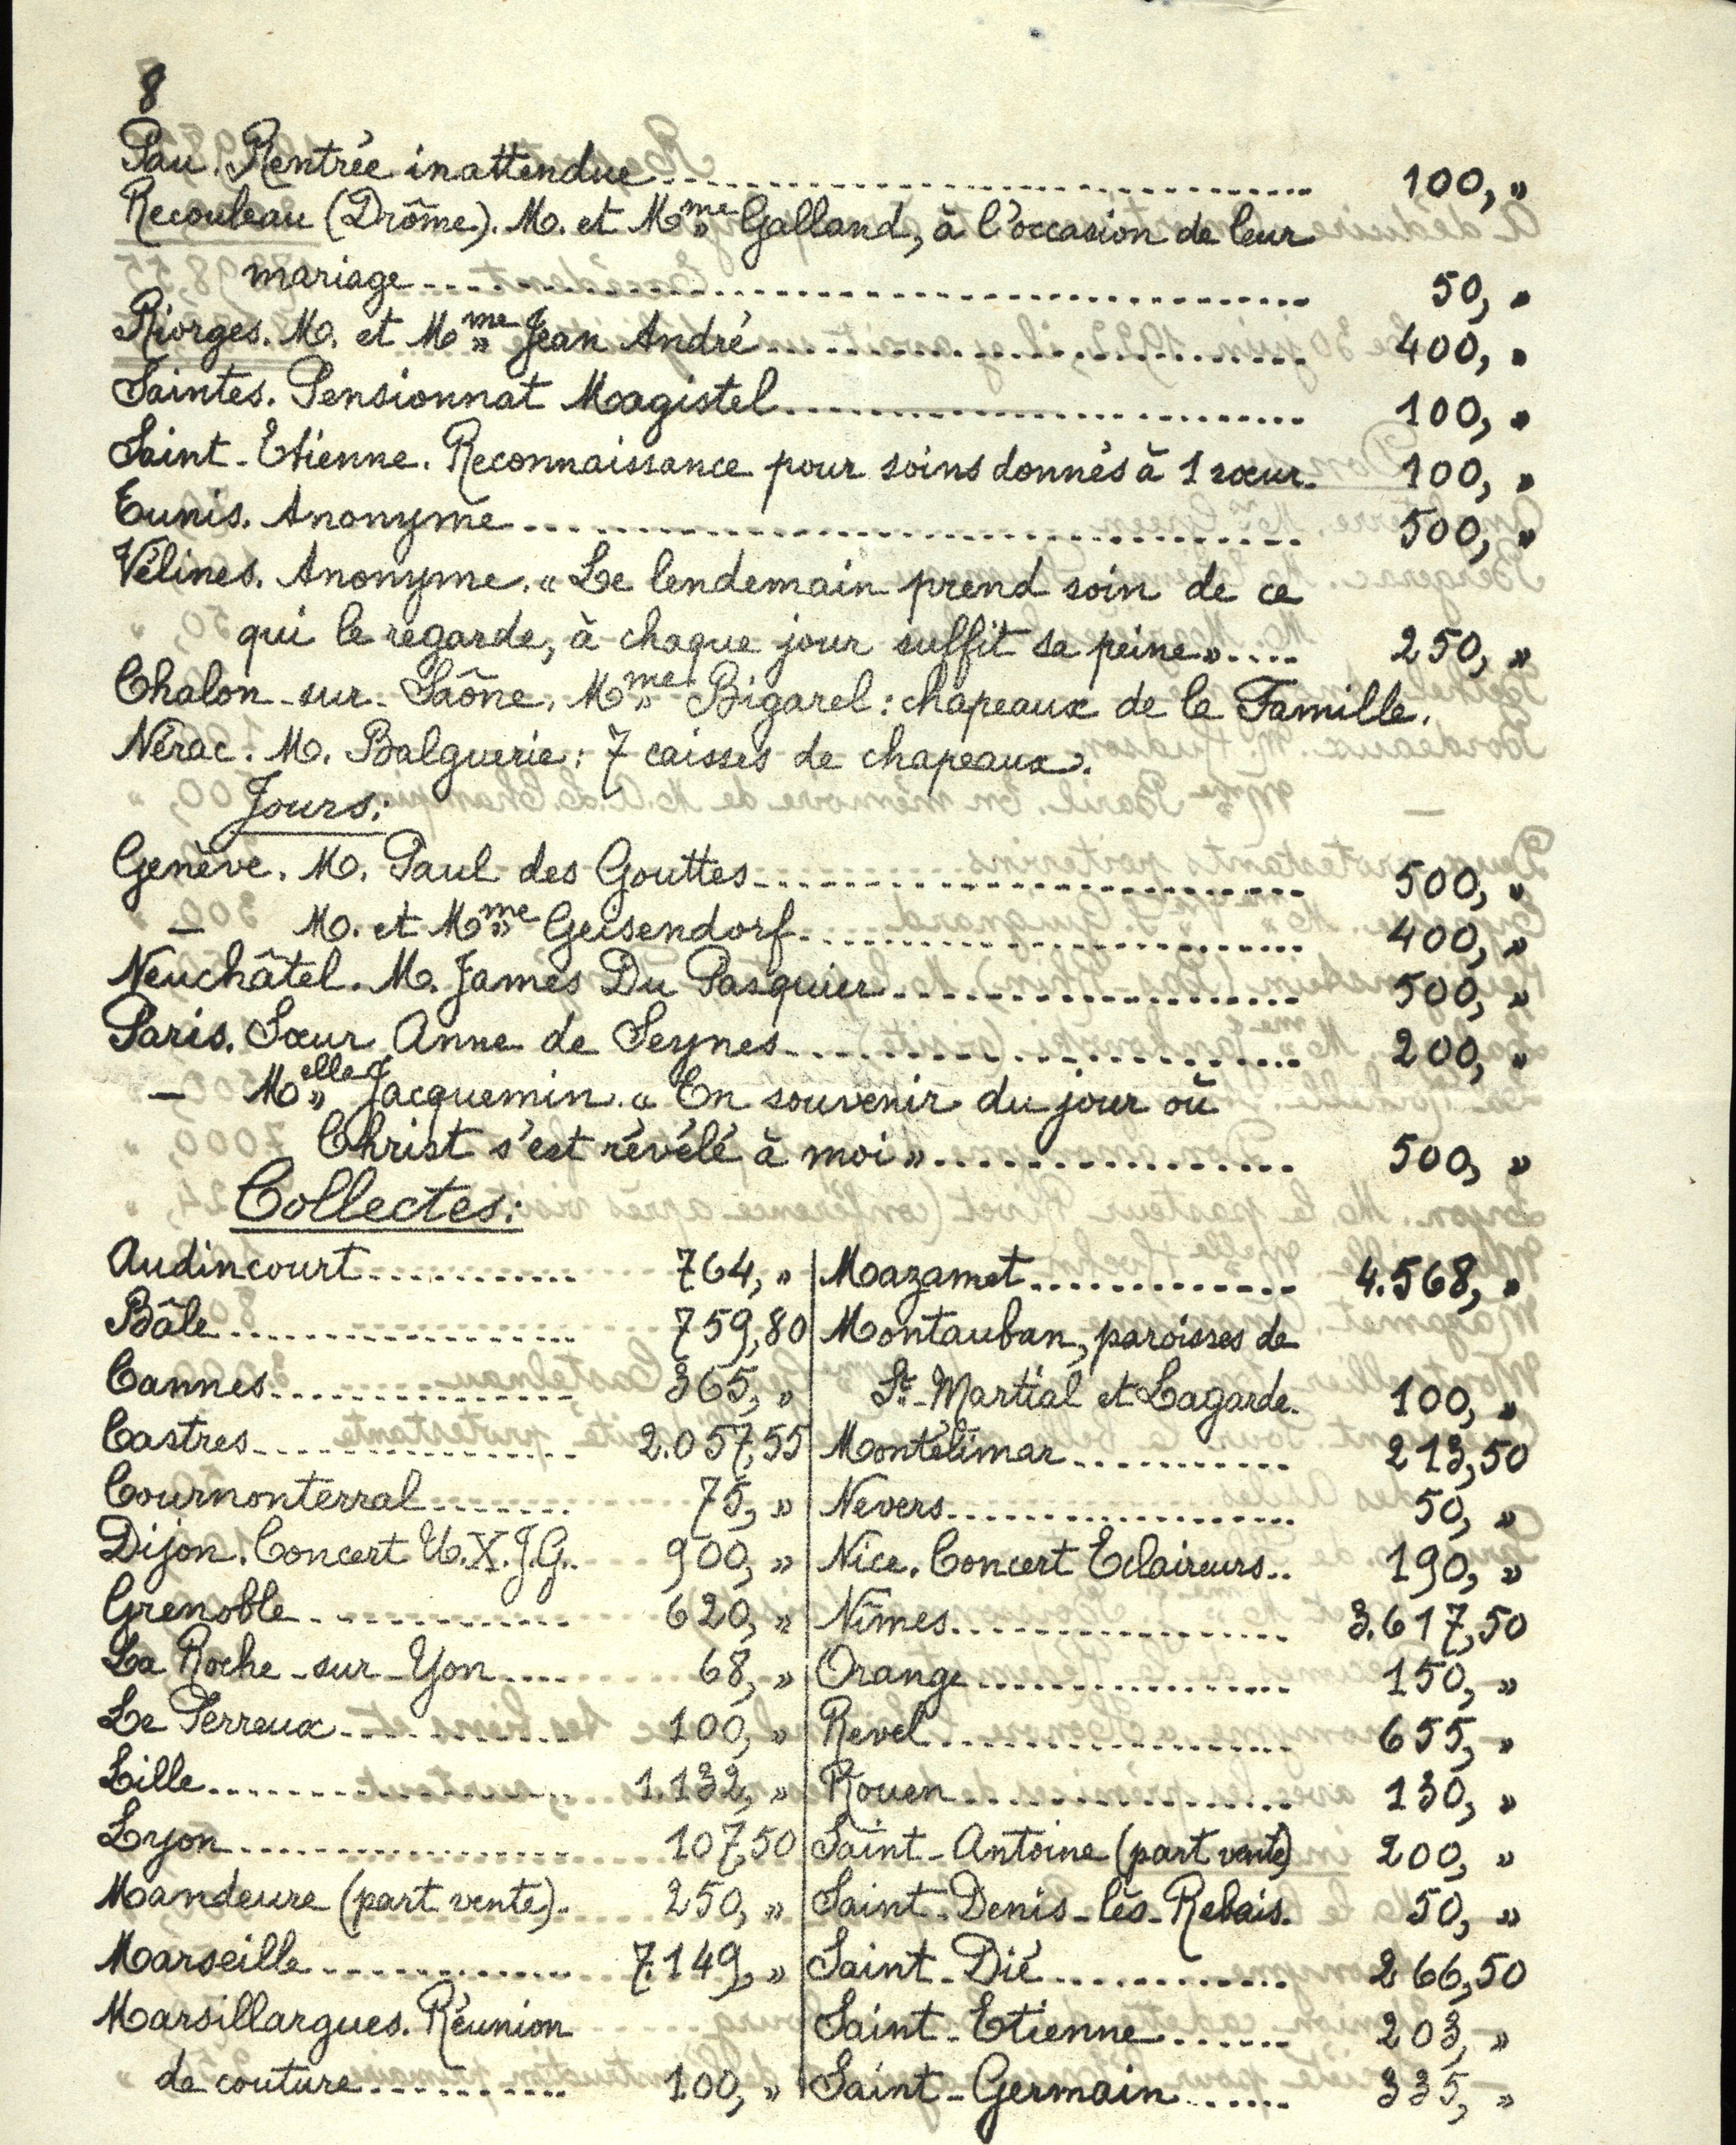 8
Pau. Rentrée inattendue 100, »
Recouleau (Drôme). M. et Mme Galland, à l'occasion de leur
mariage 50, »
Riorges. M. et Mme Jean André 400, »
Saintes. Pensionnat Magistel 100, »
Saint-Etienne. Reconnaissance pour soins donnés à 1 sœur. 100, »
Tunis. Anonyme 500, »
Vélines. Anonyme. « Le lendemain prend soin de ce
qui le regarde, à chaque jour suffit sa peine » 250, »
Chalon-sur-Saône. Mme Bigarel : chapeaux de la Famille.
Nérac. M. Balguerie : 7 caisses de chapeaux.
Jours :
Genève. M. Paul des Gouttes 500, »
— M. et Mme Geisendorf 400, »
Neuchâtel. M. James Du Pasquier 500, »
Paris. Sœur Anne de Seynes 200, »
— Melle Jacquemin. « En souvenir du jour où
Christ s'est révélé à moi » 500, »
Collectes :
Audincourt 764, »
Bâle 759,80
Cannes 365, »
Castres 2.057,55
Cournonterral 75, »
Dijon. Concert U.X.J.G. 900, »
Grenoble 620, »
La Roche-sur-Yon 68, »
Le Perreux 100, »
Lille 1.132, »
Lyon 107,50
Mandeure (part vente). 250, »
Marseille 7.149, »
Marsillargues. Réunion
de couture 100, »
Mazamet 4.568, »
Montauban, paroisses de
St-Martial et Lagarde. 100, »
Montélimar 213,50
Nevers 50, »
Nice. Concert Eclaireurs 190, »
Nîmes 3.617,50
Orange 150, »
Revel 655, »
Rouen 130, »
Saint-Antoine (part vente) 200, »
Saint-Denis-lès-Rebais. 50, »
Saint-Dié 266,50
Saint-Etienne 203, »
Saint-Germain 335, »